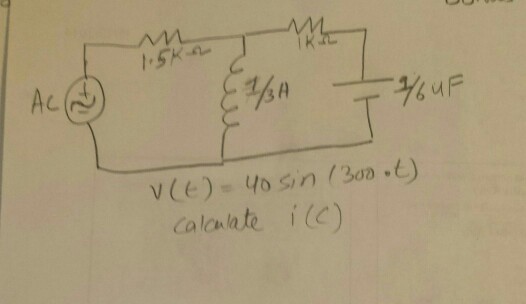 1.5K Ω
1K Ω
AC
1/3 A
1/6 uF
v(t) = 40 sin (300.t)
calculate i(c)